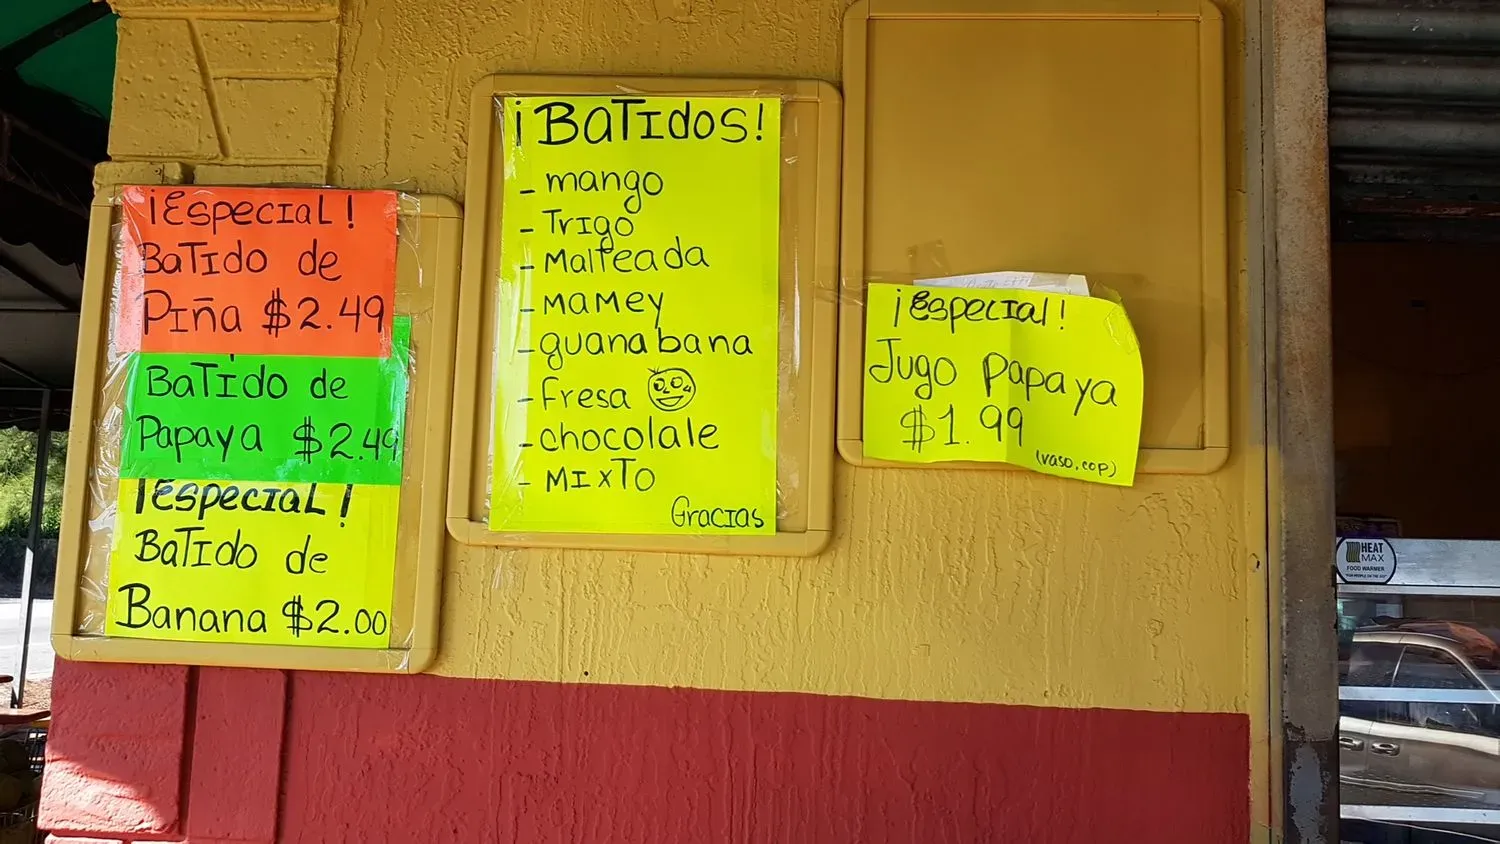 ¡Especial!
Batido de
Piña $2.49
Batido de
Papaya $2.49
¡Especial!
Batido de
Banana $2.00
¡Batidos!
- mango
- Trigo
- Malteada
- Mamey
- guanabana
- fresa
- chocolale
- Mixto
Gracias
¡Especial!
Jugo Papaya
$1.99
(vaso, cop)
HEAT
MAX
FOOD WARMER